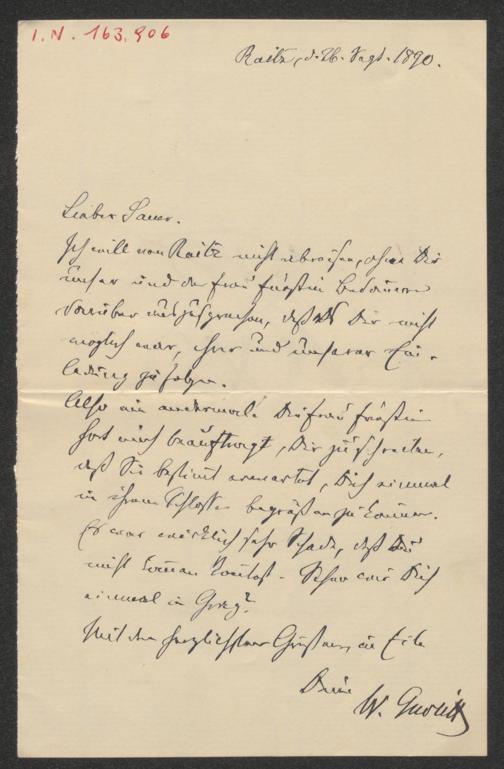 I.N. 163.906
Raitz, d. 26. Sept. 1890.
Lieber Sauer.
Ich will von Raitz nicht abreisen, ohne Dir
unser und der Frau Fürstin Bedauern
darüber auszusprechen, daß es Dir nicht
möglich war, ihrer und unserer Ein-
ladung zu folgen.
Also ein andermal! Die Frau Fürstin
hat mich beauftragt, Dir zu schreiben,
daß Sie bestimt erwartet, Dich einmal
in ihrem Schlosse begrüßen zu können.
Es war wirklich sehr Schade, daß Du
nicht komen konntest. Sehen wir Dich
einmal in Graz?
Mit den herzlichsten Grüßen, in Eile
Dein
W. Gurlitt